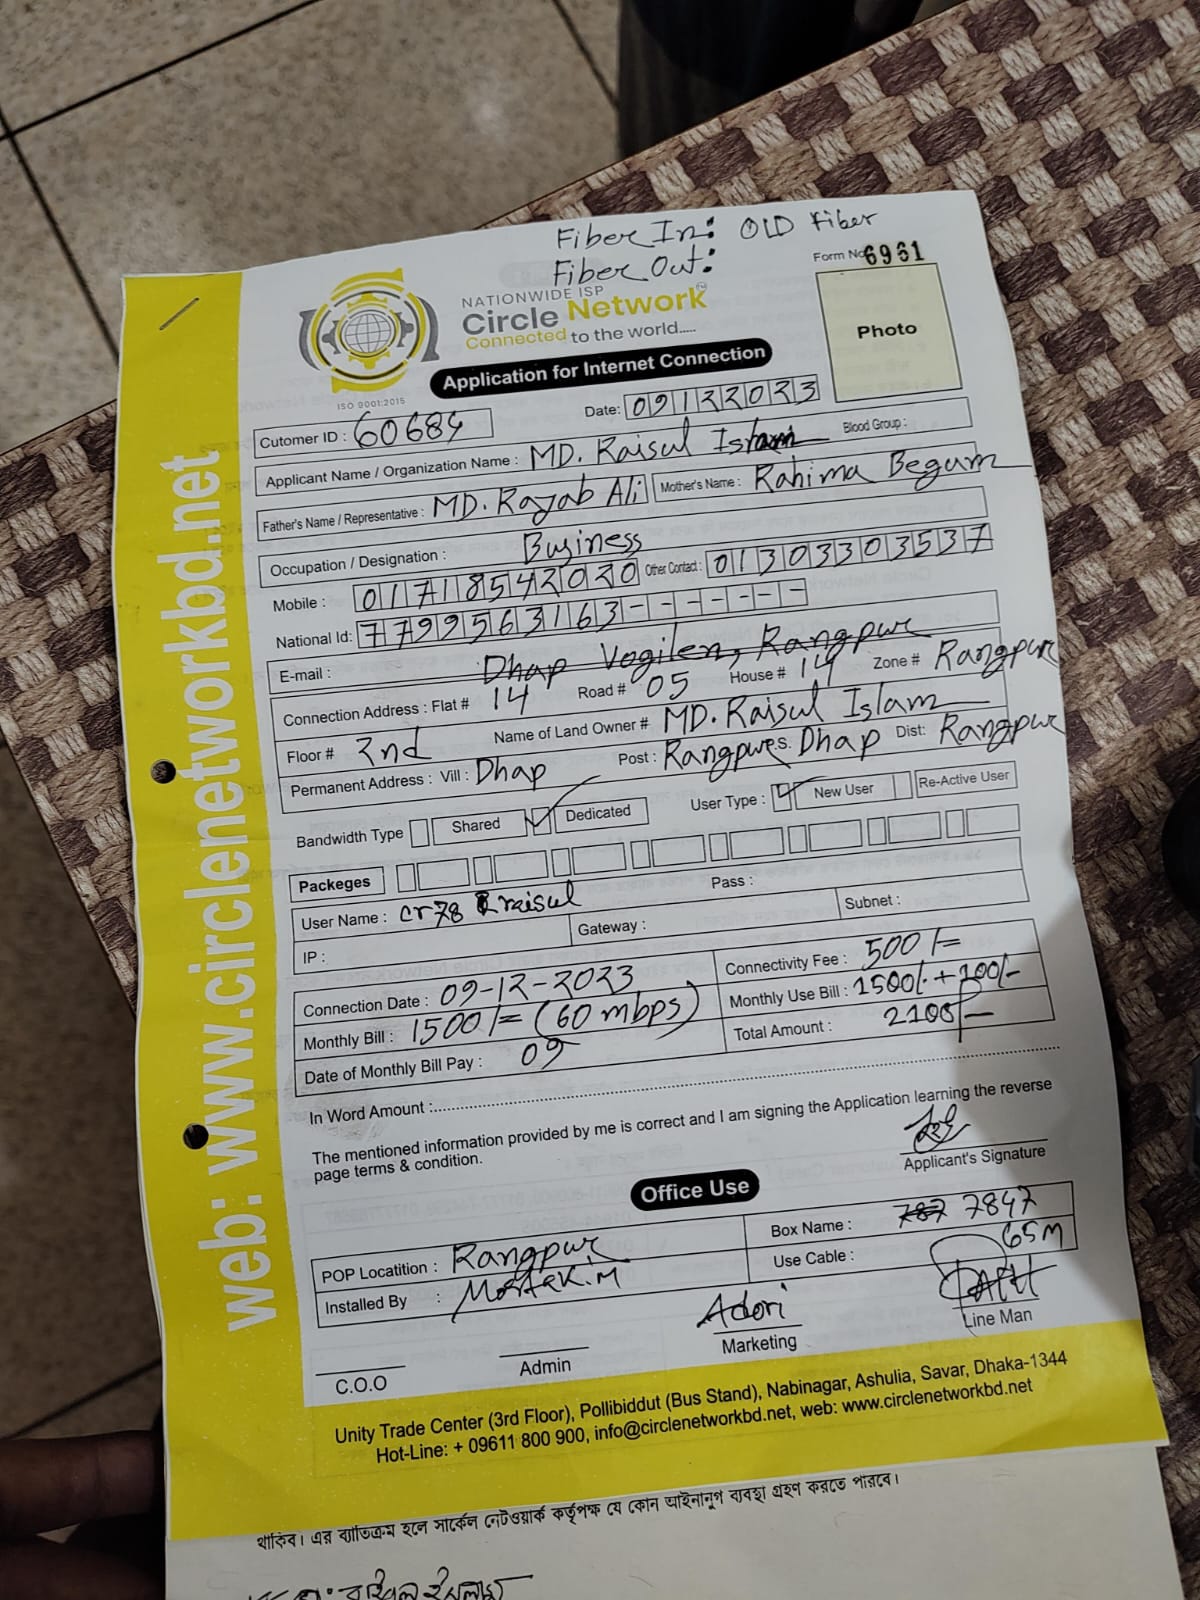 Fiber In: OLD Fiber
Fiber Out:
Form No 6961
NATIONWIDE ISP
Circle Network
Connected to the world.....
ISO 9001:2015
Photo
Application for Internet Connection
Cutomer ID : 60684 Date: 09122023
Applicant Name / Organization Name : MD. Raisul Islam Blood Group :
Father's Name / Representative : MD. Rajab Ali Mother's Name : Rahima Begum
Occupation / Designation : Business
Mobile : 01718542020 Other Contact : 01303303537
National Id: 7799563163-------
E-mail : Dhap Vogilen, Rangpur
Connection Address : Flat # 14 Road # 05 House # 14 Zone # Rangpur
Floor # 2nd Name of Land Owner # MD. Raisul Islam
Permanent Address : Vill : Dhap Post : Rangpur P.S. Dhap Dist: Rangpur
Bandwidth Type Shared Dedicated User Type : New User Re-Active User
Packeges
User Name : cr78 raisul Pass :
IP : Gateway : Subnet :
Connection Date : 09-12-2023 Connectivity Fee : 500/=
Monthly Bill : 1500/= (60 mbps) Monthly Use Bill : 1500/- + 100/-
Date of Monthly Bill Pay : 09 Total Amount : 2100/-
In Word Amount :
The mentioned information provided by me is correct and I am signing the Application learning the reverse
page terms & condition.
Applicant's Signature
Office Use
POP Locatition : Rangpur Box Name : 787 7847
Installed By : Mostak.M Use Cable : 65M
C.O.O Admin Adori Marketing Line Man
Unity Trade Center (3rd Floor), Pollibiddut (Bus Stand), Nabinagar, Ashulia, Savar, Dhaka-1344
Hot-Line: + 09611 800 900, info@circlenetworkbd.net, web: www.circlenetworkbd.net
web: www.circlenetworkbd.net
থাকিব। এর ব্যতিক্রম হলে সার্কেল নেটওয়ার্ক কর্তৃপক্ষ যে কোন আইনানুগ ব্যবস্থা গ্রহণ করতে পারবে।